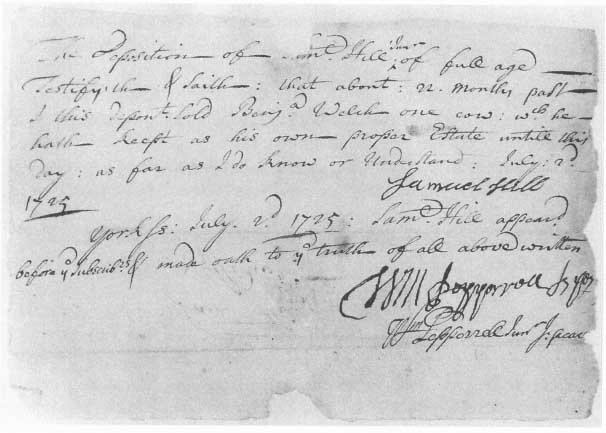 The Deposition of Samll. Hill Junr of full age
Testifyeth & Saith: that about: 22 months past
I this Depont. Sold Benja Welch one cow: wch he
hath Keept as his own proper Estate untill this
day: as far as I do know or Understand: July: 2d
1725
Samuel Hill
York ss: July. 2d 1725: Samll. Hill appeard
before ye Subscribrs & made oath to ye truth of all above written
Wm Pepperrell Js peac
Wm Pepperrell Junr Js: peac